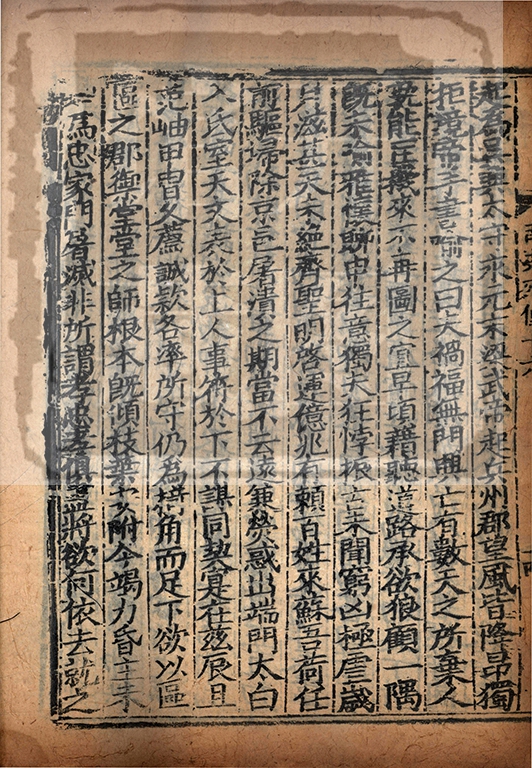 起為吳興太守永元末梁武帝起兵州郡望風皆降昂獨
拒境帝手書喻之曰夫禍福無門興亡有數天之所棄人
孰能匡機來不再圖之宜早頃藉聽道路承欲狼顧一隅
既未喻雅懷聊申往意獨夫狂悖振古未聞窮凶極虐歲
月滋甚天未絕齊聖明啓運億兆有賴百姓來蘇吾荷任
前驅掃除京邑屠潰之期當不云遠兼熒惑出端門太白
入氐室天文表於上人事符於下不謀同契寔在茲辰且
范岫申胄久薦誠款各率所守仍為掎角而足下欲以區
區之郡御堂堂之師根本既傾枝葉安附今竭力昏主未
足為忠家門屠滅非所謂孝忠孝俱盡將欲何依去就之